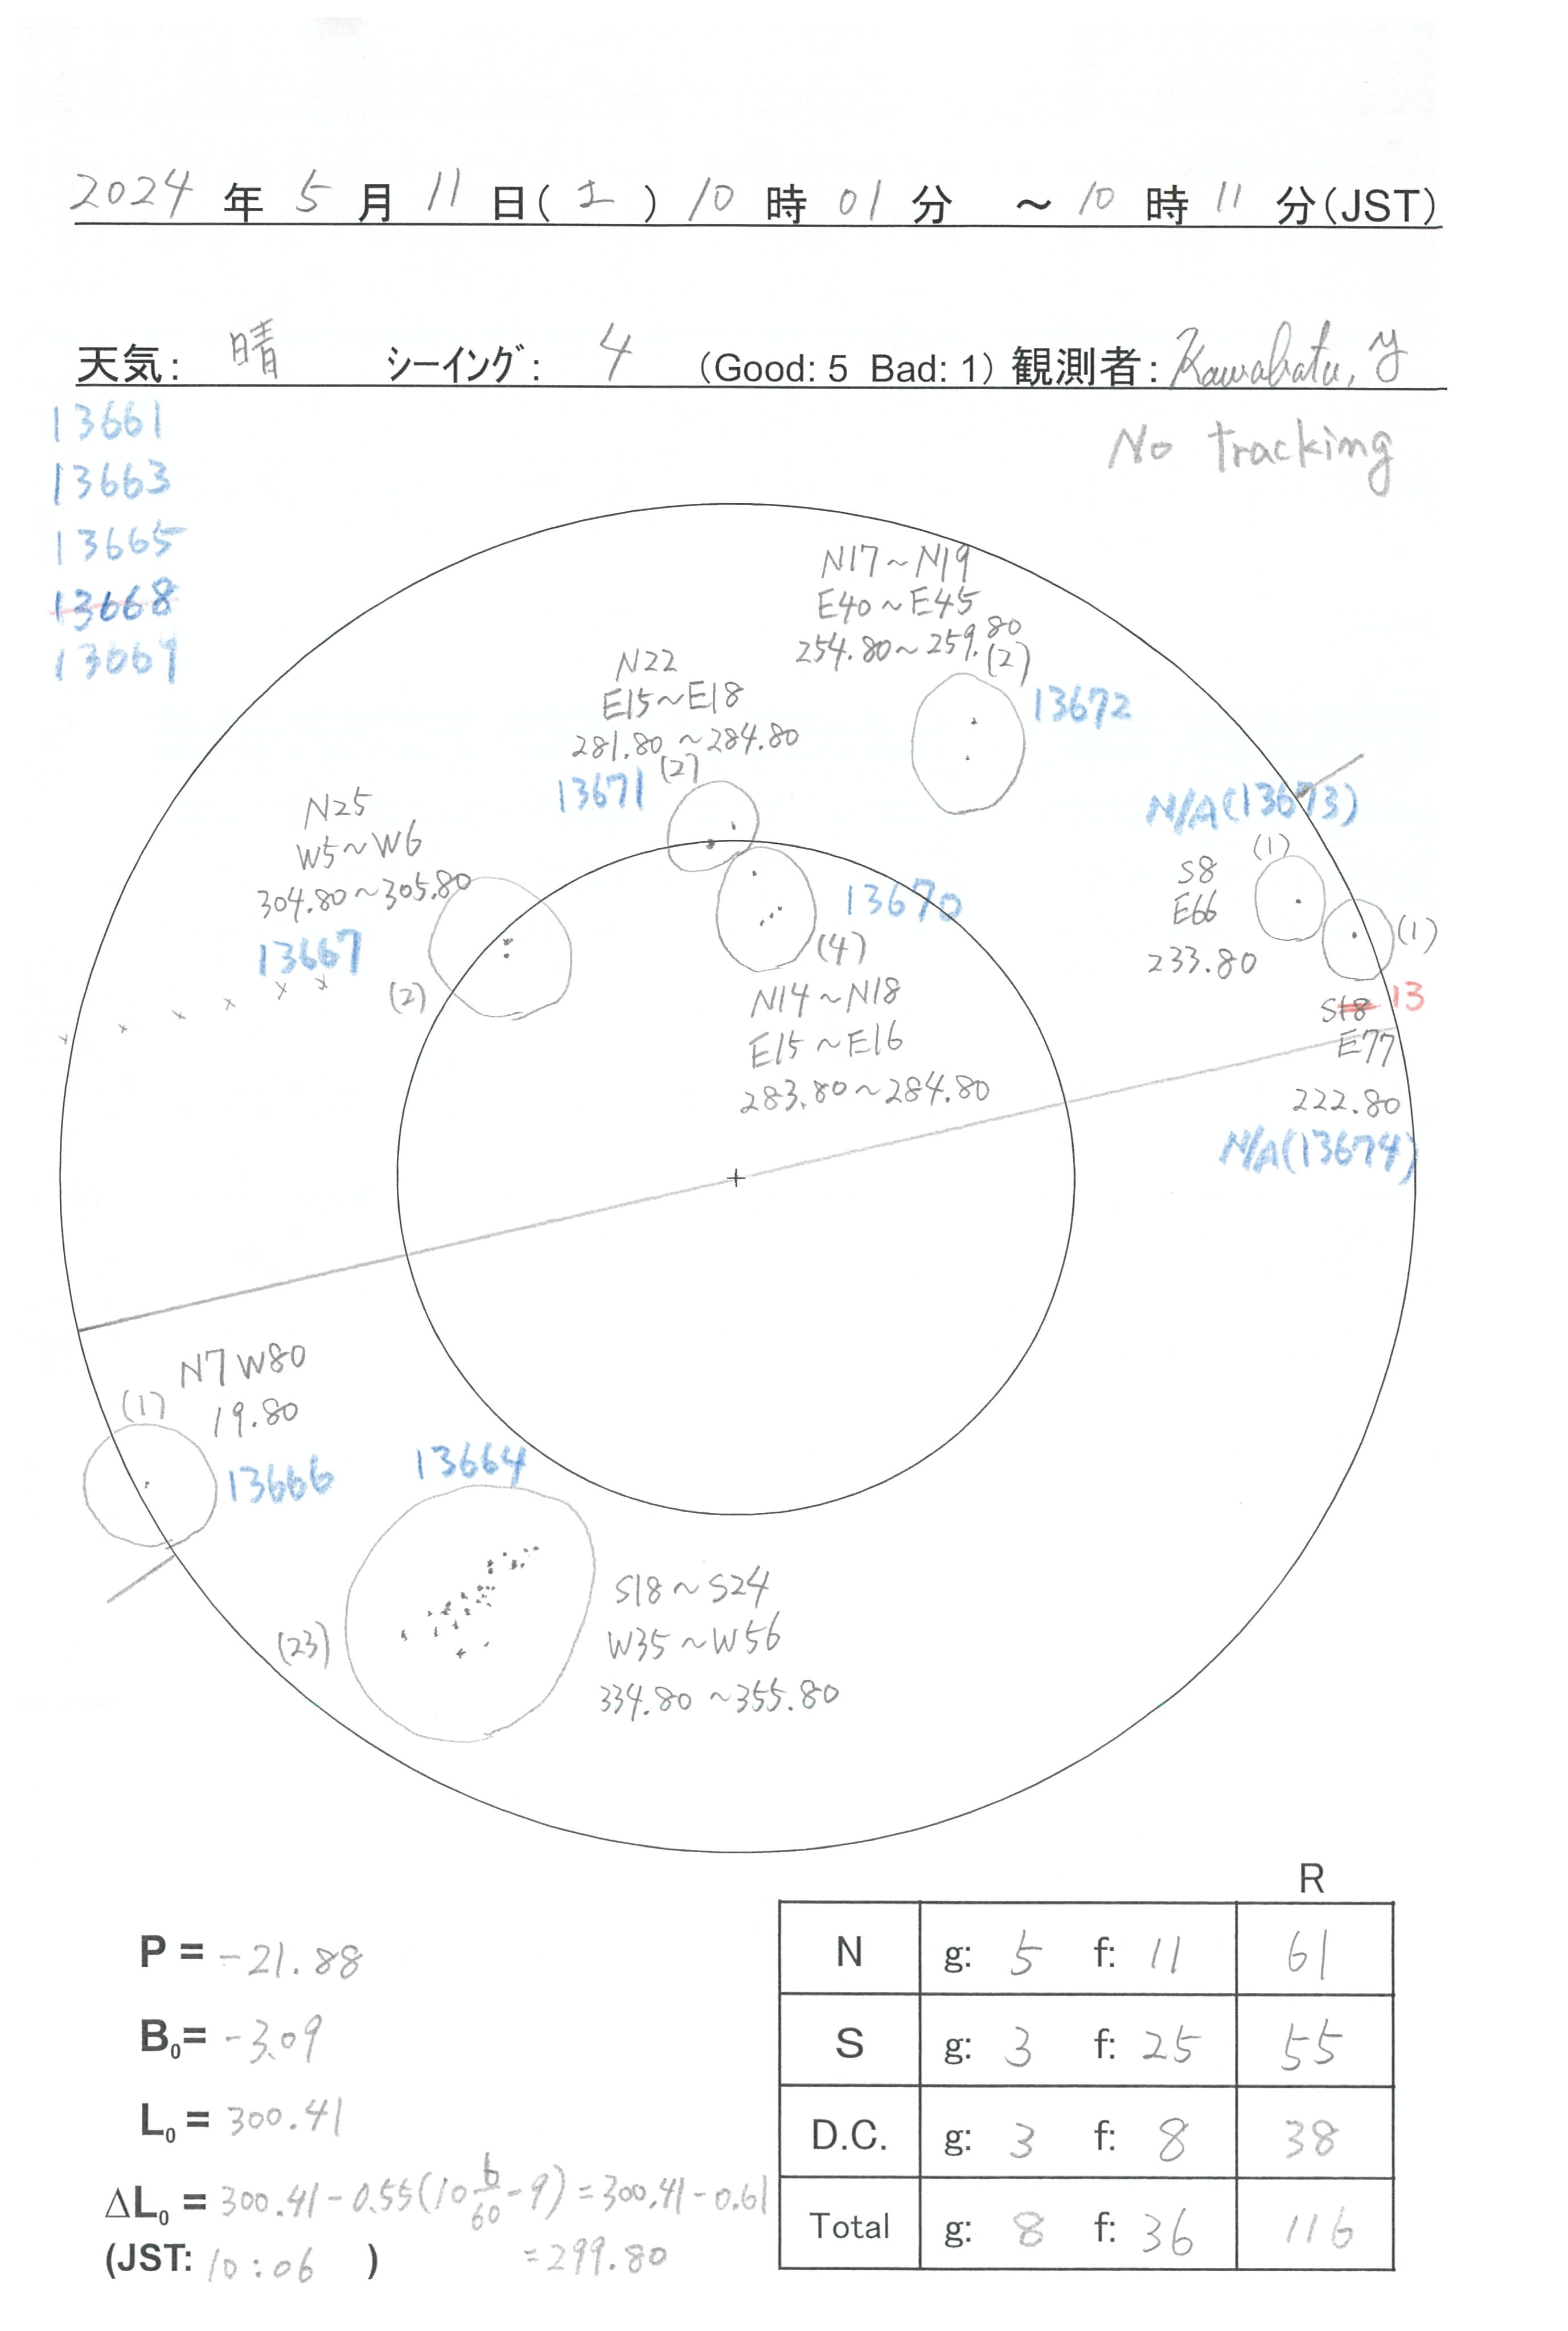 2024 年 5 月 11 日(土) 10 時 01 分 ～ 10 時 11 分(JST)
天気: 晴 シーイング: 4 (Good: 5 Bad: 1) 観測者: Kawabata, Y
No tracking
13661
13663
13665
13668
13669
N17～N19
E40～E45
254.80～259.80
(2)
13672
N22
E15～E18
281.80～284.80
(2)
13671
N25
W5～W6
304.80～305.80
13667
(2)
13670
(4)
N14～N18
E15～E16
283.80～284.80
N/A(13673)
(1)
S8
E66
233.80
(1)
S18 13
E77
222.80
N/A(13674)
N7 W80
(1)
19.80
13666
13664
(23)
S18～S24
W35～W56
334.80～355.80
P = -21.88
B0= -3.09
L0 = 300.41
ΔL0 = 300.41-0.55(10 6/60 -9)=300.41-0.61
(JST: 10:06 ) =299.80
R
N g: 5 f: 11 61
S g: 3 f: 25 55
D.C. g: 3 f: 8 38
Total g: 8 f: 36 116